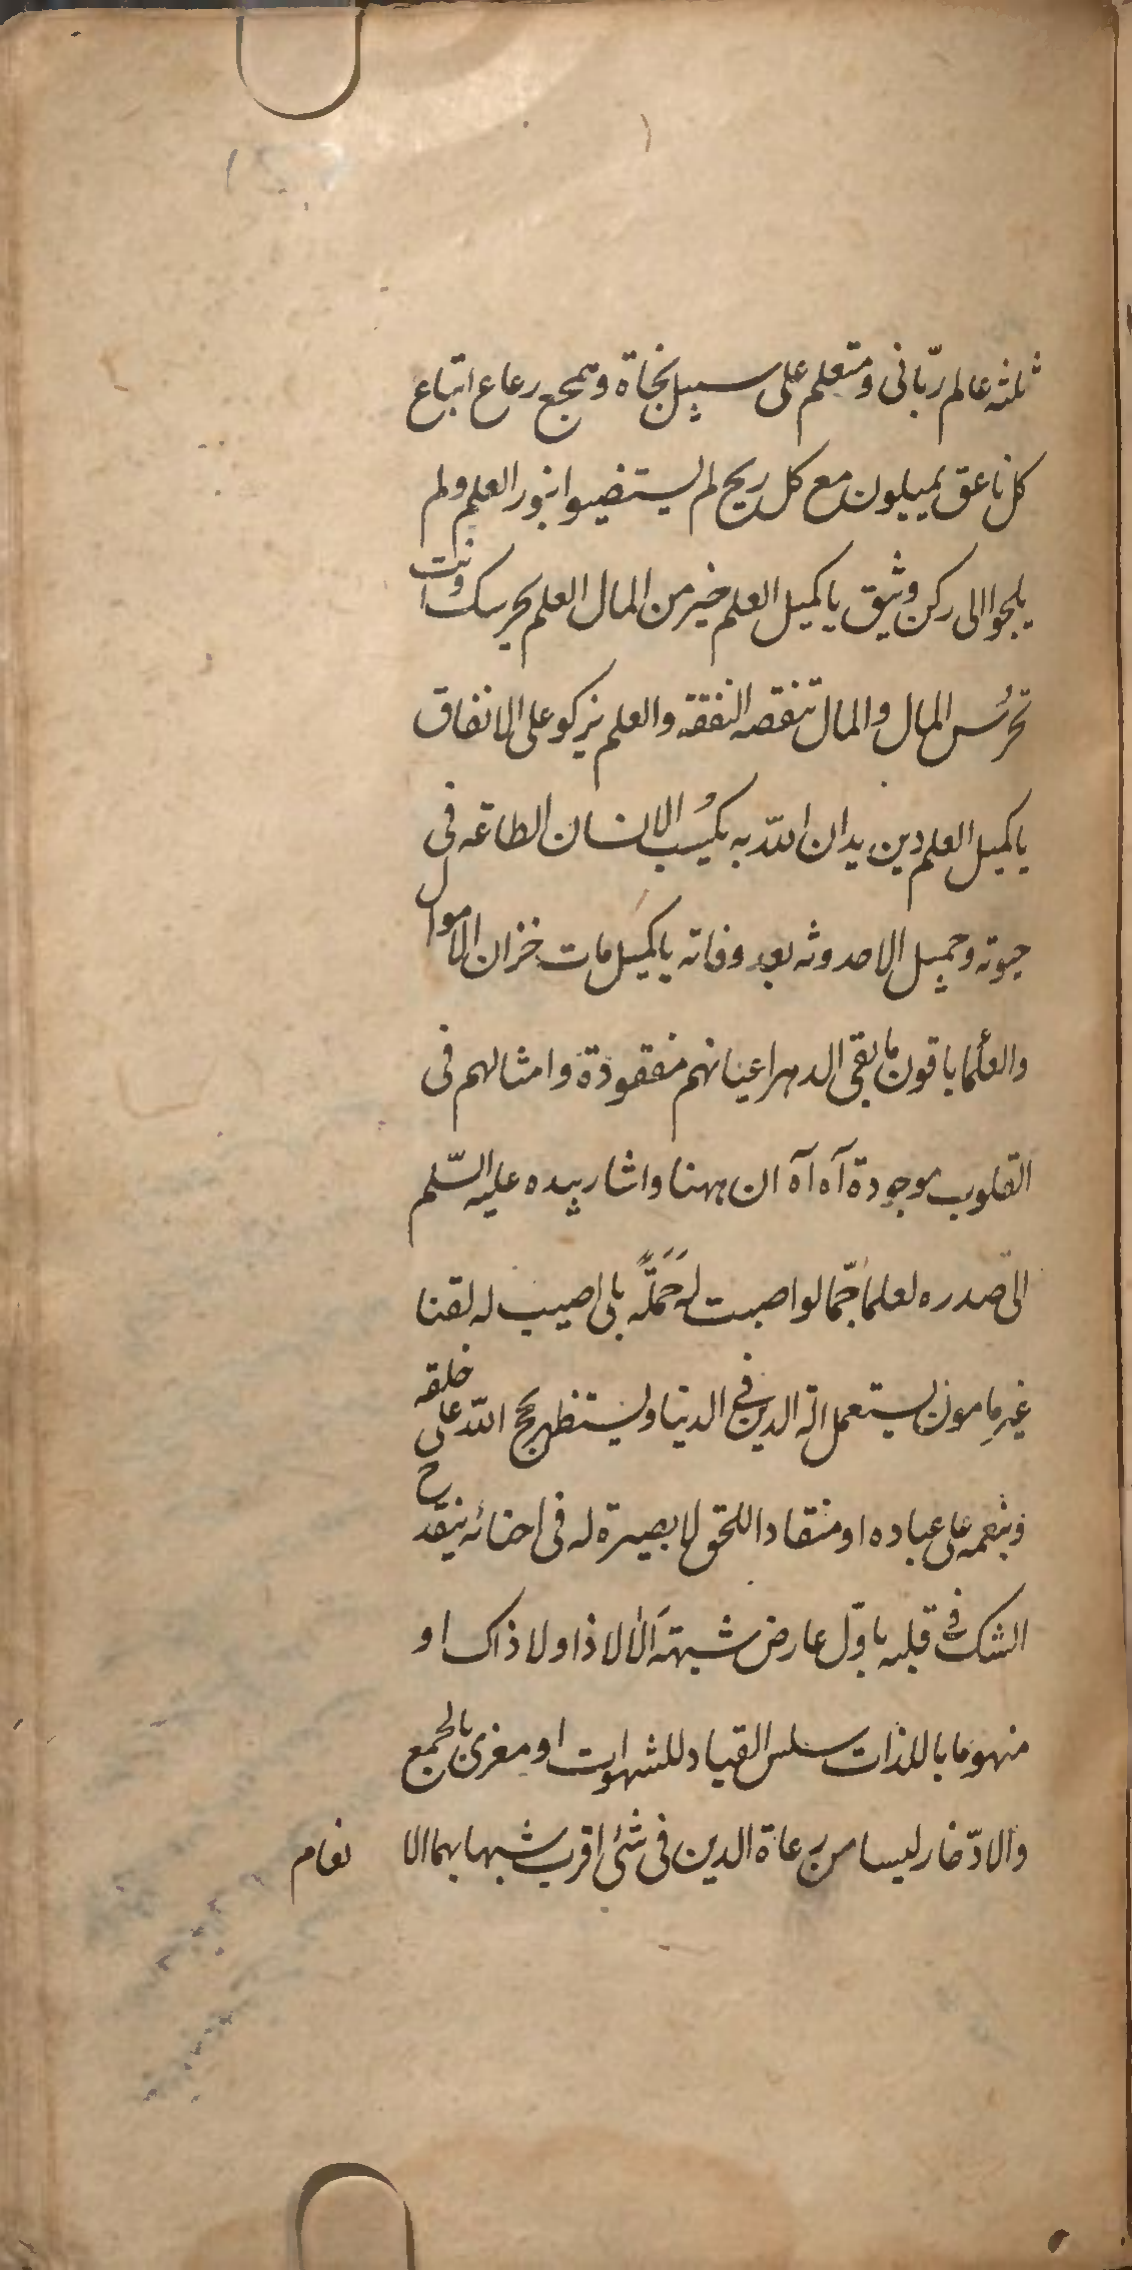 ثلثه عالم ربّانى ومتعلم على سبيل نجاة وهمج رعاع اتباع
كل ناعق يميلون مع كل ريح لم يستضيوا بنور العلم ولم
يلجوا الى ركن وثيق يا كميل العلم خير من المال العلم يحرسك وانت
تحرُس المال والمال تنقصه النفقة والعلم يزكو على الانفاق
يا كميل العلم دين يدان اللّه به يكسُب الانسان الطاعه فى
حيوته وجميل الاحدوثه بعد وفاته يا كميل مات خزان الاموال
والعلما باقون ما بقى الدهر اعيانهم مفقودة وامثالهم فى
القلوب موجودة آه آه ان ههنا واشار بيده عليه السّلم
الى صدره لعلما جمّا لو اصبت له حَمَلَةً بلى اصيب له لقنا
غير مامون يستعمل اله الدين فى الدنيا ويستظهر بحجج اللّه على خلقه
وبنعمه على عباده او منقادا للحق لا بصيرة له فى احنائه ينقدح
الشك فى قلبه باوّل عارض شبهة اَلا لا ذا ولا ذاك او
منهوما باللذات سلس القياد للشهوات او مغرى بالجمع
والادّخار ليسا من رعاة الدين فى شئ اقرب شبها بهما الا
نعام